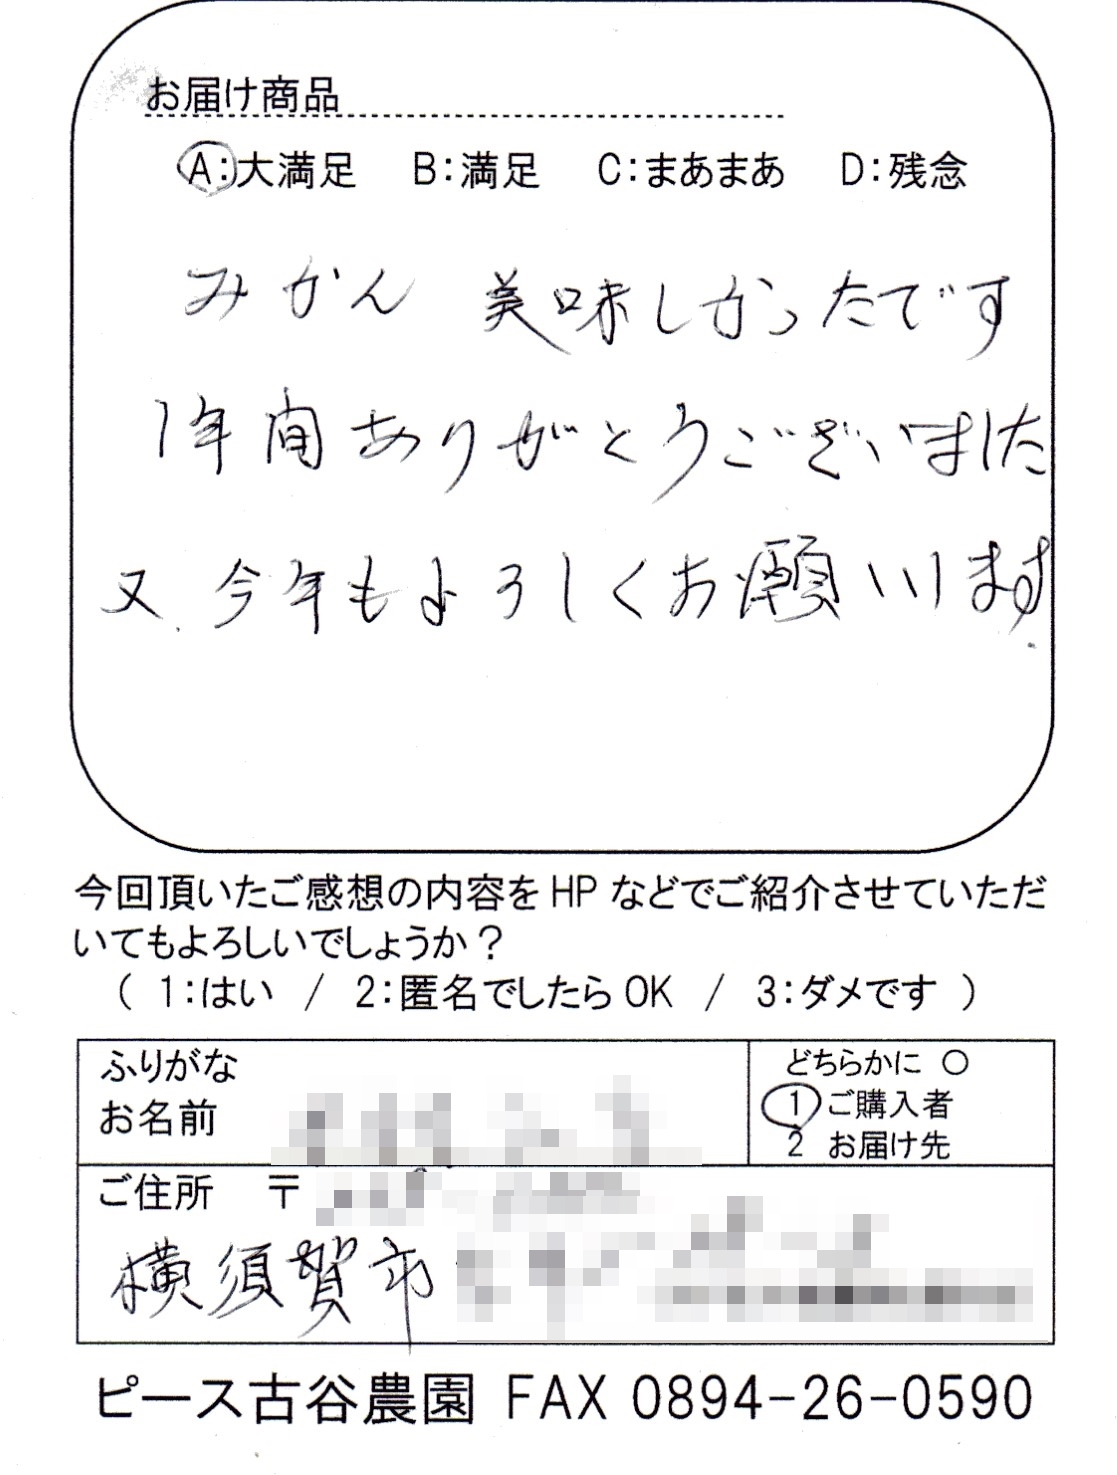 お届け商品
A:大満足 B:満足 C:まあまあ D:残念
みかん 美味しかったです
1年間ありがとうございました
又、今年もよろしくお願いします
今回頂いたご感想の内容をHPなどでご紹介させていただ
いてもよろしいでしょうか?
( 1:はい / 2:匿名でしたらOK / 3:ダメです )
ふりがな
お名前
どちらかに ○
1 ご購入者
2 お届け先
ご住所 〒
横須賀市
ピース古谷農園 FAX 0894-26-0590